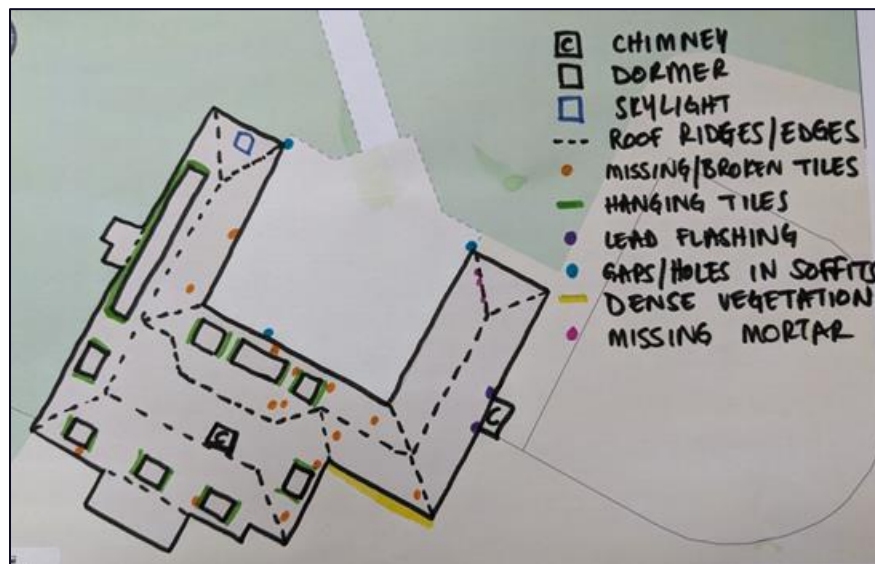 C CHIMNEY
DORMER
SKYLIGHT
ROOF RIDGES/EDGES
MISSING/BROKEN TILES
HANGING TILES
LEAD FLASHING
GAPS/HOLES IN SOFFITS
DENSE VEGETATION
MISSING MORTAR
C
C